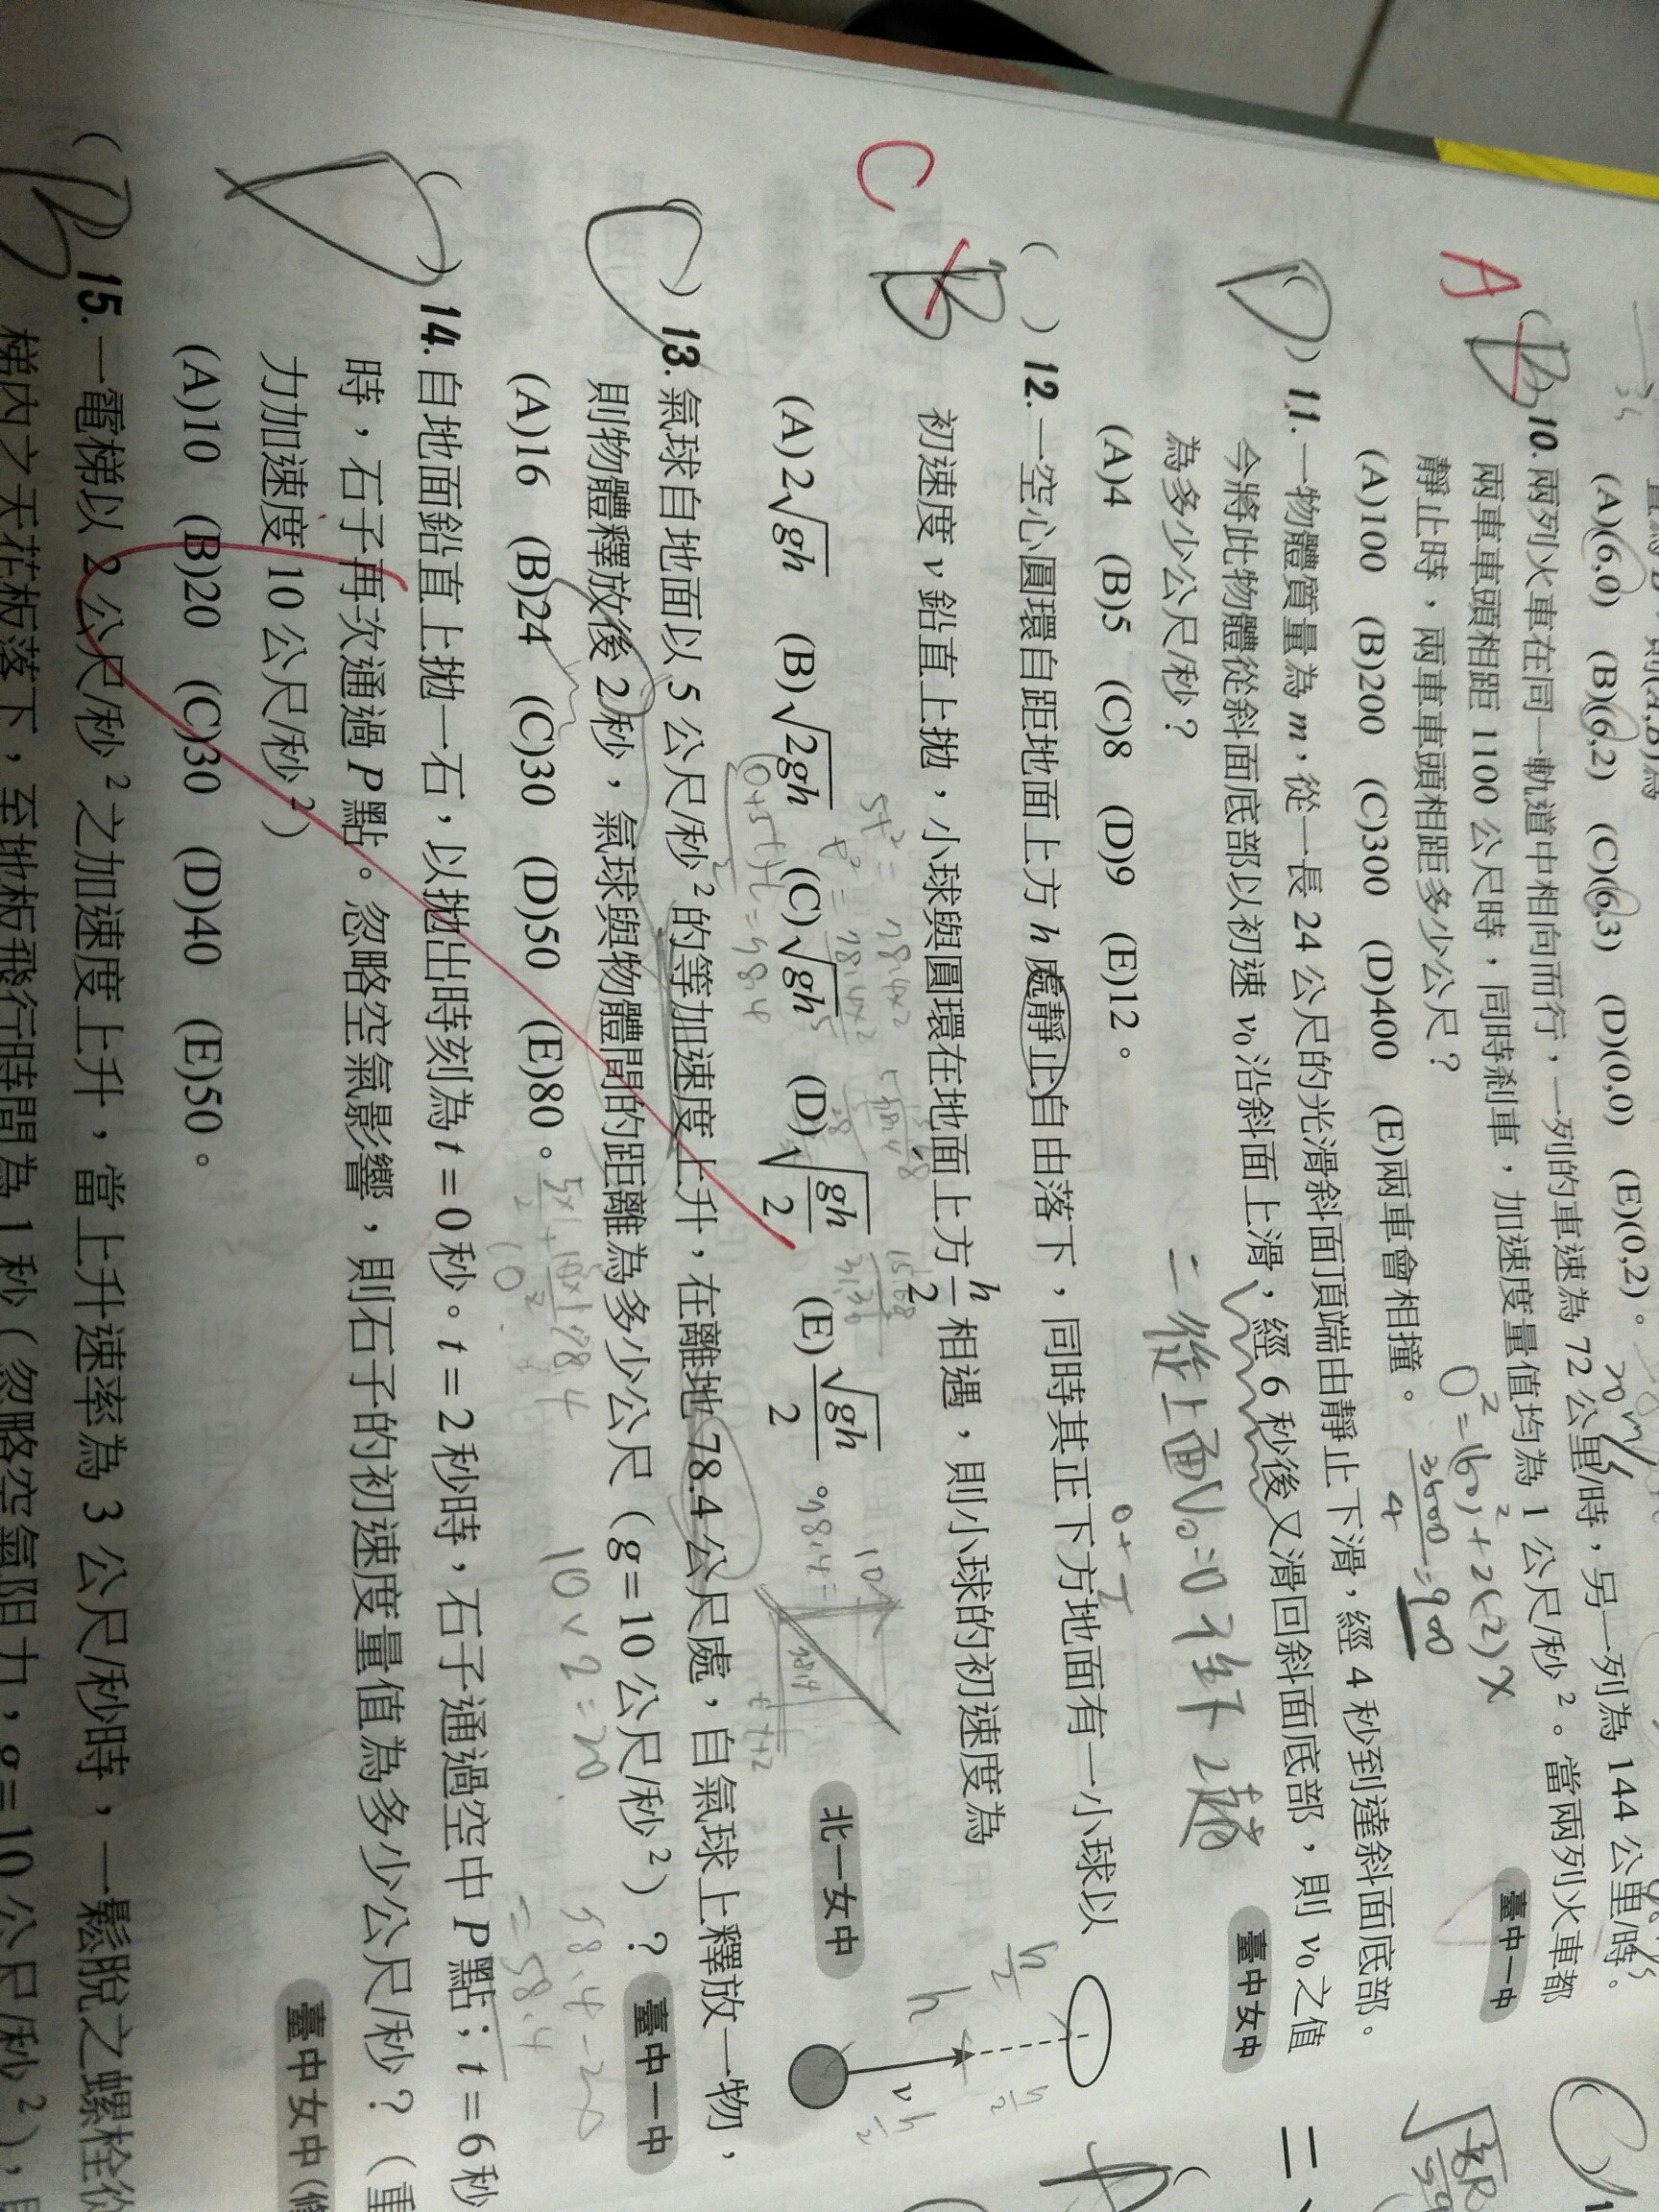 (A)(6,0) (B)(6,2) (C)(6,3) (D)(0,0) (E)(0,2)。
A
B
10.兩列火車在同一軌道中相向而行,一列的車速為 72 公里/時,另一列為 144 公里/時。
20 m/s
兩車車頭相距 1100 公尺時,同時剎車,加速度量值均為 1 公尺/秒²。當兩列火車都
靜止時,兩車車頭相距多少公尺?
臺中一中
(A)100 (B)200 (C)300 (D)400 (E)兩車會相撞。
0²=(60)²+2(-2)X
3600/4=900
D
11.一物體質量為 m,從一長 24 公尺的光滑斜面頂端由靜止下滑,經 4 秒到達斜面底部。
今將此物體從斜面底部以初速 v₀ 沿斜面上滑,經 6 秒後又滑回斜面底部,則 v₀ 之值
為多少公尺/秒?
臺中女中
(A)4 (B)5 (C)8 (D)9 (E)12。
C
B
( ) 12.一空心圓環自距地面上方 h 處靜止自由落下,同時其正下方地面有一小球以
初速度 v 鉛直上拋,小球與圓環在地面上方 h/2 相遇,則小球的初速度為
(A)2√gh (B)√2gh (C)√gh (D)√(gh/2) (E)√gh/2。
北一女中
h
v
C
( ) 13.氣球自地面以 5 公尺/秒² 的等加速度上升,在離地 78.4 公尺處,自氣球上釋放一物,
則物體釋放後 2 秒,氣球與物體間的距離為多少公尺(g=10 公尺/秒²)?
臺中一中
(A)16 (B)24 (C)30 (D)50 (E)80。
10×2=20
( ) 14.自地面鉛直上拋一石,以拋出時刻為 t=0 秒。t=2 秒時,石子通過空中 P 點;t=6 秒
時,石子再次通過 P 點。忽略空氣影響,則石子的初速度量值為多少公尺/秒?(重
力加速度 10 公尺/秒²)
臺中女中(修
(A)10 (B)20 (C)30 (D)40 (E)50。
( ) 15.一電梯以 2 公尺/秒² 之加速度上升,當上升速率為 3 公尺/秒時,一鬆脫之螺栓從
梯內之天花板落下,至地板飛行時間為 1 秒(忽略空氣阻力,g=10 公尺/秒²),